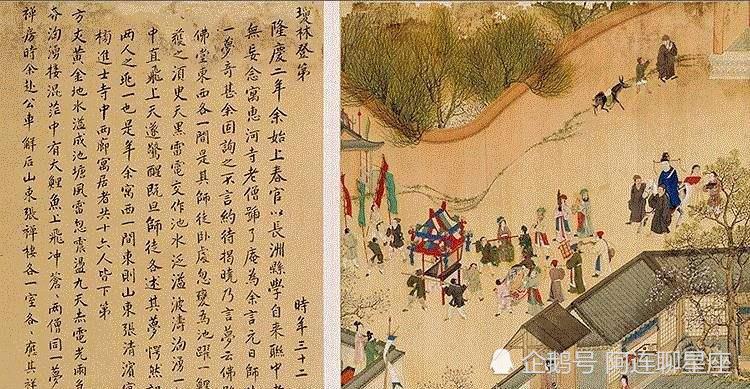 瓊林登第 時年三十二
隆慶二年余始上春官以長洲縣學自來聯中者
無妄念寓惠河寺老僧號了庵為余言元日師
一夢奇甚余因詢之不言約待揭曉乃言夢云佛
佛堂東西各一間是其師徒臥處忽甃為池躍一鯉
之須臾天黑雷電交作池水泛溢波濤洶湧一
中直飛上天遂驚醒既旦師徒各述其夢愕然
兩人之兆一也是年余寓西一間東則山東張濱
進士寺中兩廊寓居者共十六人皆下第
方丈黃金地水溢成池塘風雷忽震盪九天赤電光兩
奔洶湧接混茫中有大鯉魚上飛沖蒼〻兩僧同一夢
禪房時余赴公車解后山東張祥棲各一室各應其祥
企鹅号 阿连聊星座